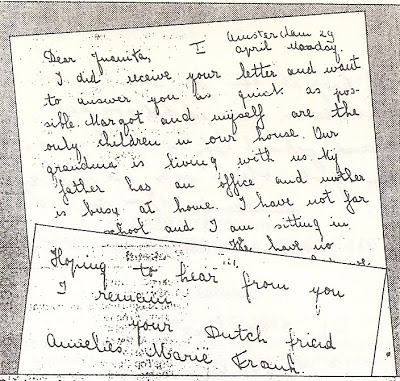 Amsterdam 29
Dear Juanita, I april Monday.
I did receive your letter and want
to answer you as quick as pos-
sible. Margot and myself are the
only children in our house. Our
grandma is living with us. My
father has an office and mother
is busy at home. I have not far
school and I am sitting in
We have no
Hoping to hear from you
I remain
your Dutch friend
Annelies Marie Frank.